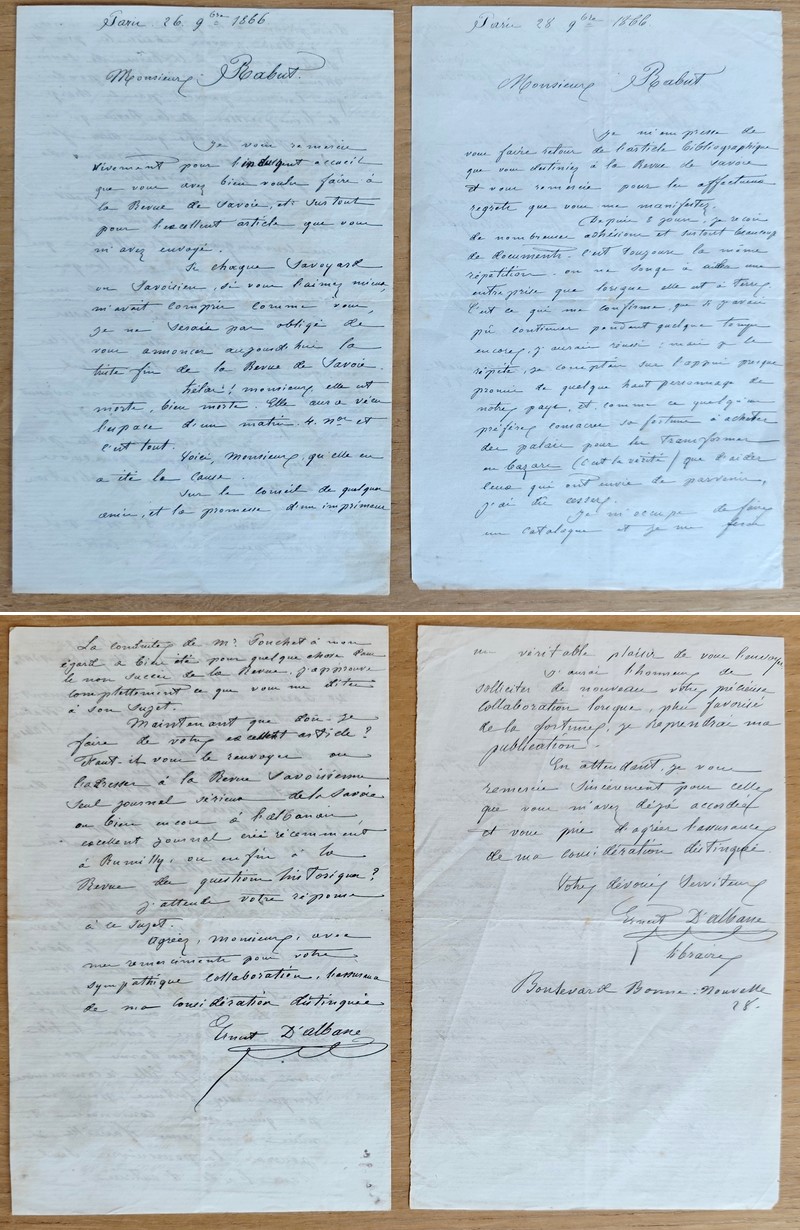 Paris 26 9bre 1866
Monsieur Rabut.
Je vous remercie
vivement pour l'indulgent accueil
que vous avez bien voulu faire à
la Revue de Savoie, et surtout
pour l'excellent article que vous
m'avez envoyé.
Si chaque Savoyard
ou Savoisien, si vous l'aimez mieux,
m'avait compris comme vous,
je ne serais pas obligé de
vous annoncer aujourd'hui la
triste fin de la Revue de Savoie.
Hélas! monsieur, elle est
morte, bien morte. Elle aura vécu
l'espace d'un matin. 4 nos et
c'est tout.
Voici, Monsieur, qu'elle en
a été la cause.
Sur le conseil de quelques
amis, et la promesse d'un imprimeur
Paris 28 9bre 1866.
Monsieur Rabut
Je m'empresse de
vous faire retour de l'article bibliographique
que vous destiniez à la Revue de Savoie
et vous remercie pour les affectueux
regrets que vous me manifestez.
Depuis 8 jours, je reçois
de nombreuses adhésions et surtout beaucoup
de documents. C'est toujours la même
répétition on ne songe à aider une
entreprise que lorsque elle est à terre.
C'est ce qui me confirme que si j'avais
pû continuer pendant quelque temps
encore, j'aurais réussi; mais je le
répète, je comptais sur l'appui presque
promis de quelque haut personnage de
notre pays, et, comme ce quelqu'un
préfère consacrer sa fortune à acheter
des palais pour les transformer
en bazars (c'est la vérité) que d'aider
ceux qui ont envie de parvenir,
j'ai dû cesser.
Je m'occupe de faire
un catalogue et je me ferai
La conduite de Mr. Pouchet à mon
égard a bien été pour quelque chose dans
le non succès de la Revue. j'approuve
complettement ce que vous me dites
à son sujet.
Maintenant que dois-je
faire de votre excellent article?
Faut-il vous le renvoyer ou
l'adresser à la Revue Savoisienne
seul journal sérieux de la Savoie
ou bien encore à l'albanais,
excellent journal créé récemment
à Rumilly, ou enfin à la
Revue des questions historiques?
j'attends votre réponse
à ce sujet.
Agréez, monsieur, avec
mes remerciments pour votre
sympathique collaboration, l'assurance
de ma considération distinguée
Ernest D'albane
un véritable plaisir de vous l'envoyer
J'aurai l'honneur de
solliciter de nouveau votre précieuse
collaboration lorsque, plus favorisé
de la fortune, je reprendrai ma
publication.
En attendant, je vous
remercie sincèrement pour celle
que vous m'avez déjà accordée
et vous prie d'agréer l'assurance
de ma considération distinguée.
Votre dévoué Serviteur
Ernest D'albane
libraire
Boulevard Bonne-Nouvelle
28.